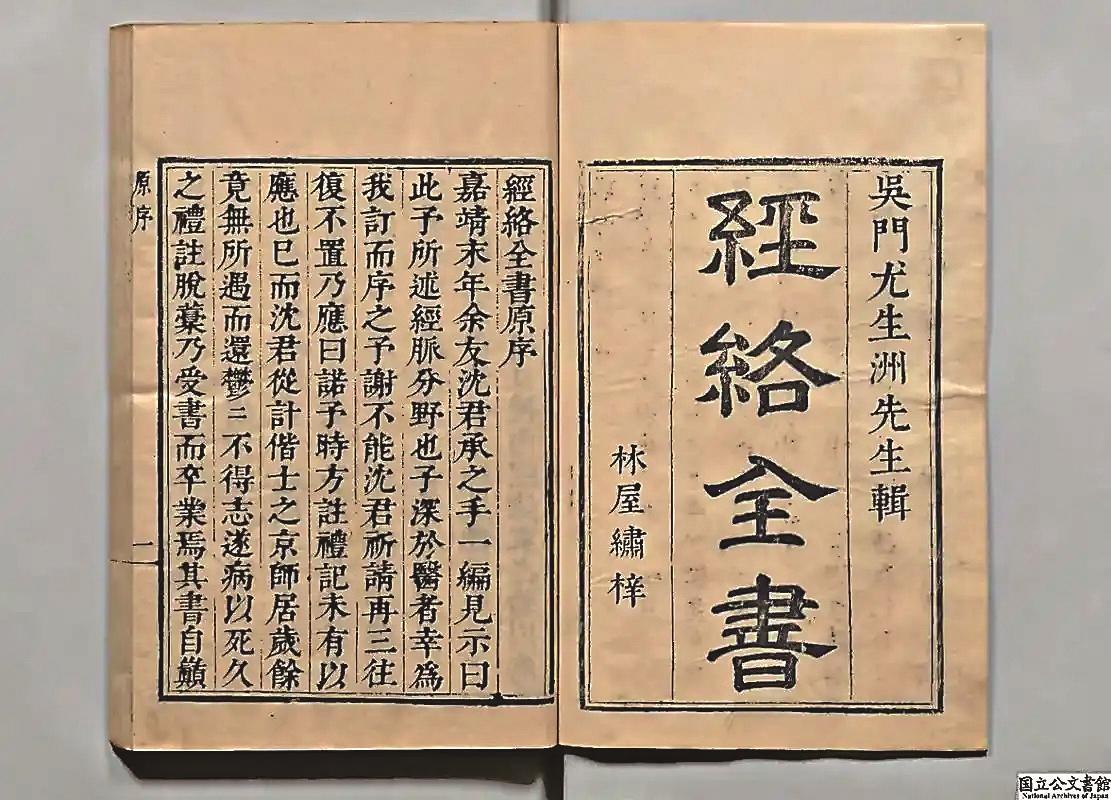 吳門尤生洲先生輯
經絡全書
林屋繡梓
經絡全書原序
嘉靖末年余友沈君承之手一編見示曰
此予所述經脈分野也子深於醫者幸爲
我訂而序之予謝不能沈君祈請再三往
復不置乃應曰諾予時方註禮記未有以
應也已而沈君從計偕士之京師居歲餘
竟無所遇而還鬱〻不得志遂病以死久
之禮註脫藁乃受書而卒業焉其書自巔
原序
一
国立公文書館
National Archives of Japan